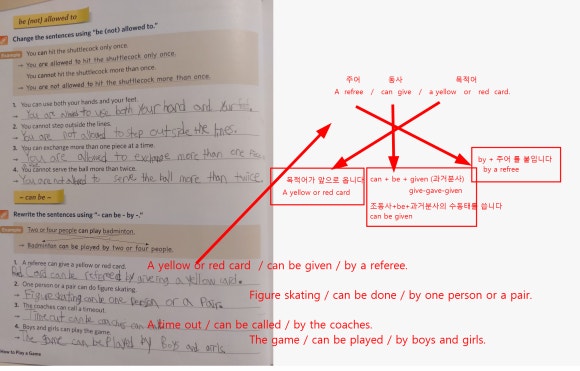 be (not) allowed to
Change the sentences using "be (not) allowed to."
Example
You can hit the shuttlecock only once.
→ You are allowed to hit the shuttlecock only once.
You cannot hit the shuttlecock more than once.
→ You are not allowed to hit the shuttlecock more than once.
1. You can use both your hands and your feet.
→ You are allowed to use both your hand and your feet.
2. You cannot step outside the lines.
→ You are not allowed to step outside the lines.
3. You can exchange more than one piece at a time.
→ You are allowed to exchange more than one
4. You cannot serve the ball more than twice.
→ You are not allowed to serve the ball more than twice
~ can be ~
Rewrite the sentences using "~ can be ~ by ~."
Example
Two or four people can play badminton.
→ Badminton can be played by two or four people.
1. A referee can give a yellow or red card.
Red Card can be referred by giving a yellow card.
2. One person or a pair can do figure skating.
→ Figure skating can be one person or a Pair.
3. The coaches can call a timeout.
→ Time out can be
4. Boys and girls can play the game.
→ The game can be played by Boys and girls
How to Play a Game
주어 동사 목적어
A refree / can give / a yellow or red card.
목적어가 앞으로 옵니다
A yellow or red card
can + be + given (과거분사)
give-gave-given
조동사+be+과거분사의 수동태를 씁니다
can be given
by + 주어 를 붙입니다
by a refree
A yellow or red card / can be given / by a referee.
Figure skating / can be done / by one person or a pair.
A time out / can be called / by the coaches.
The game / can be played / by boys and girls.